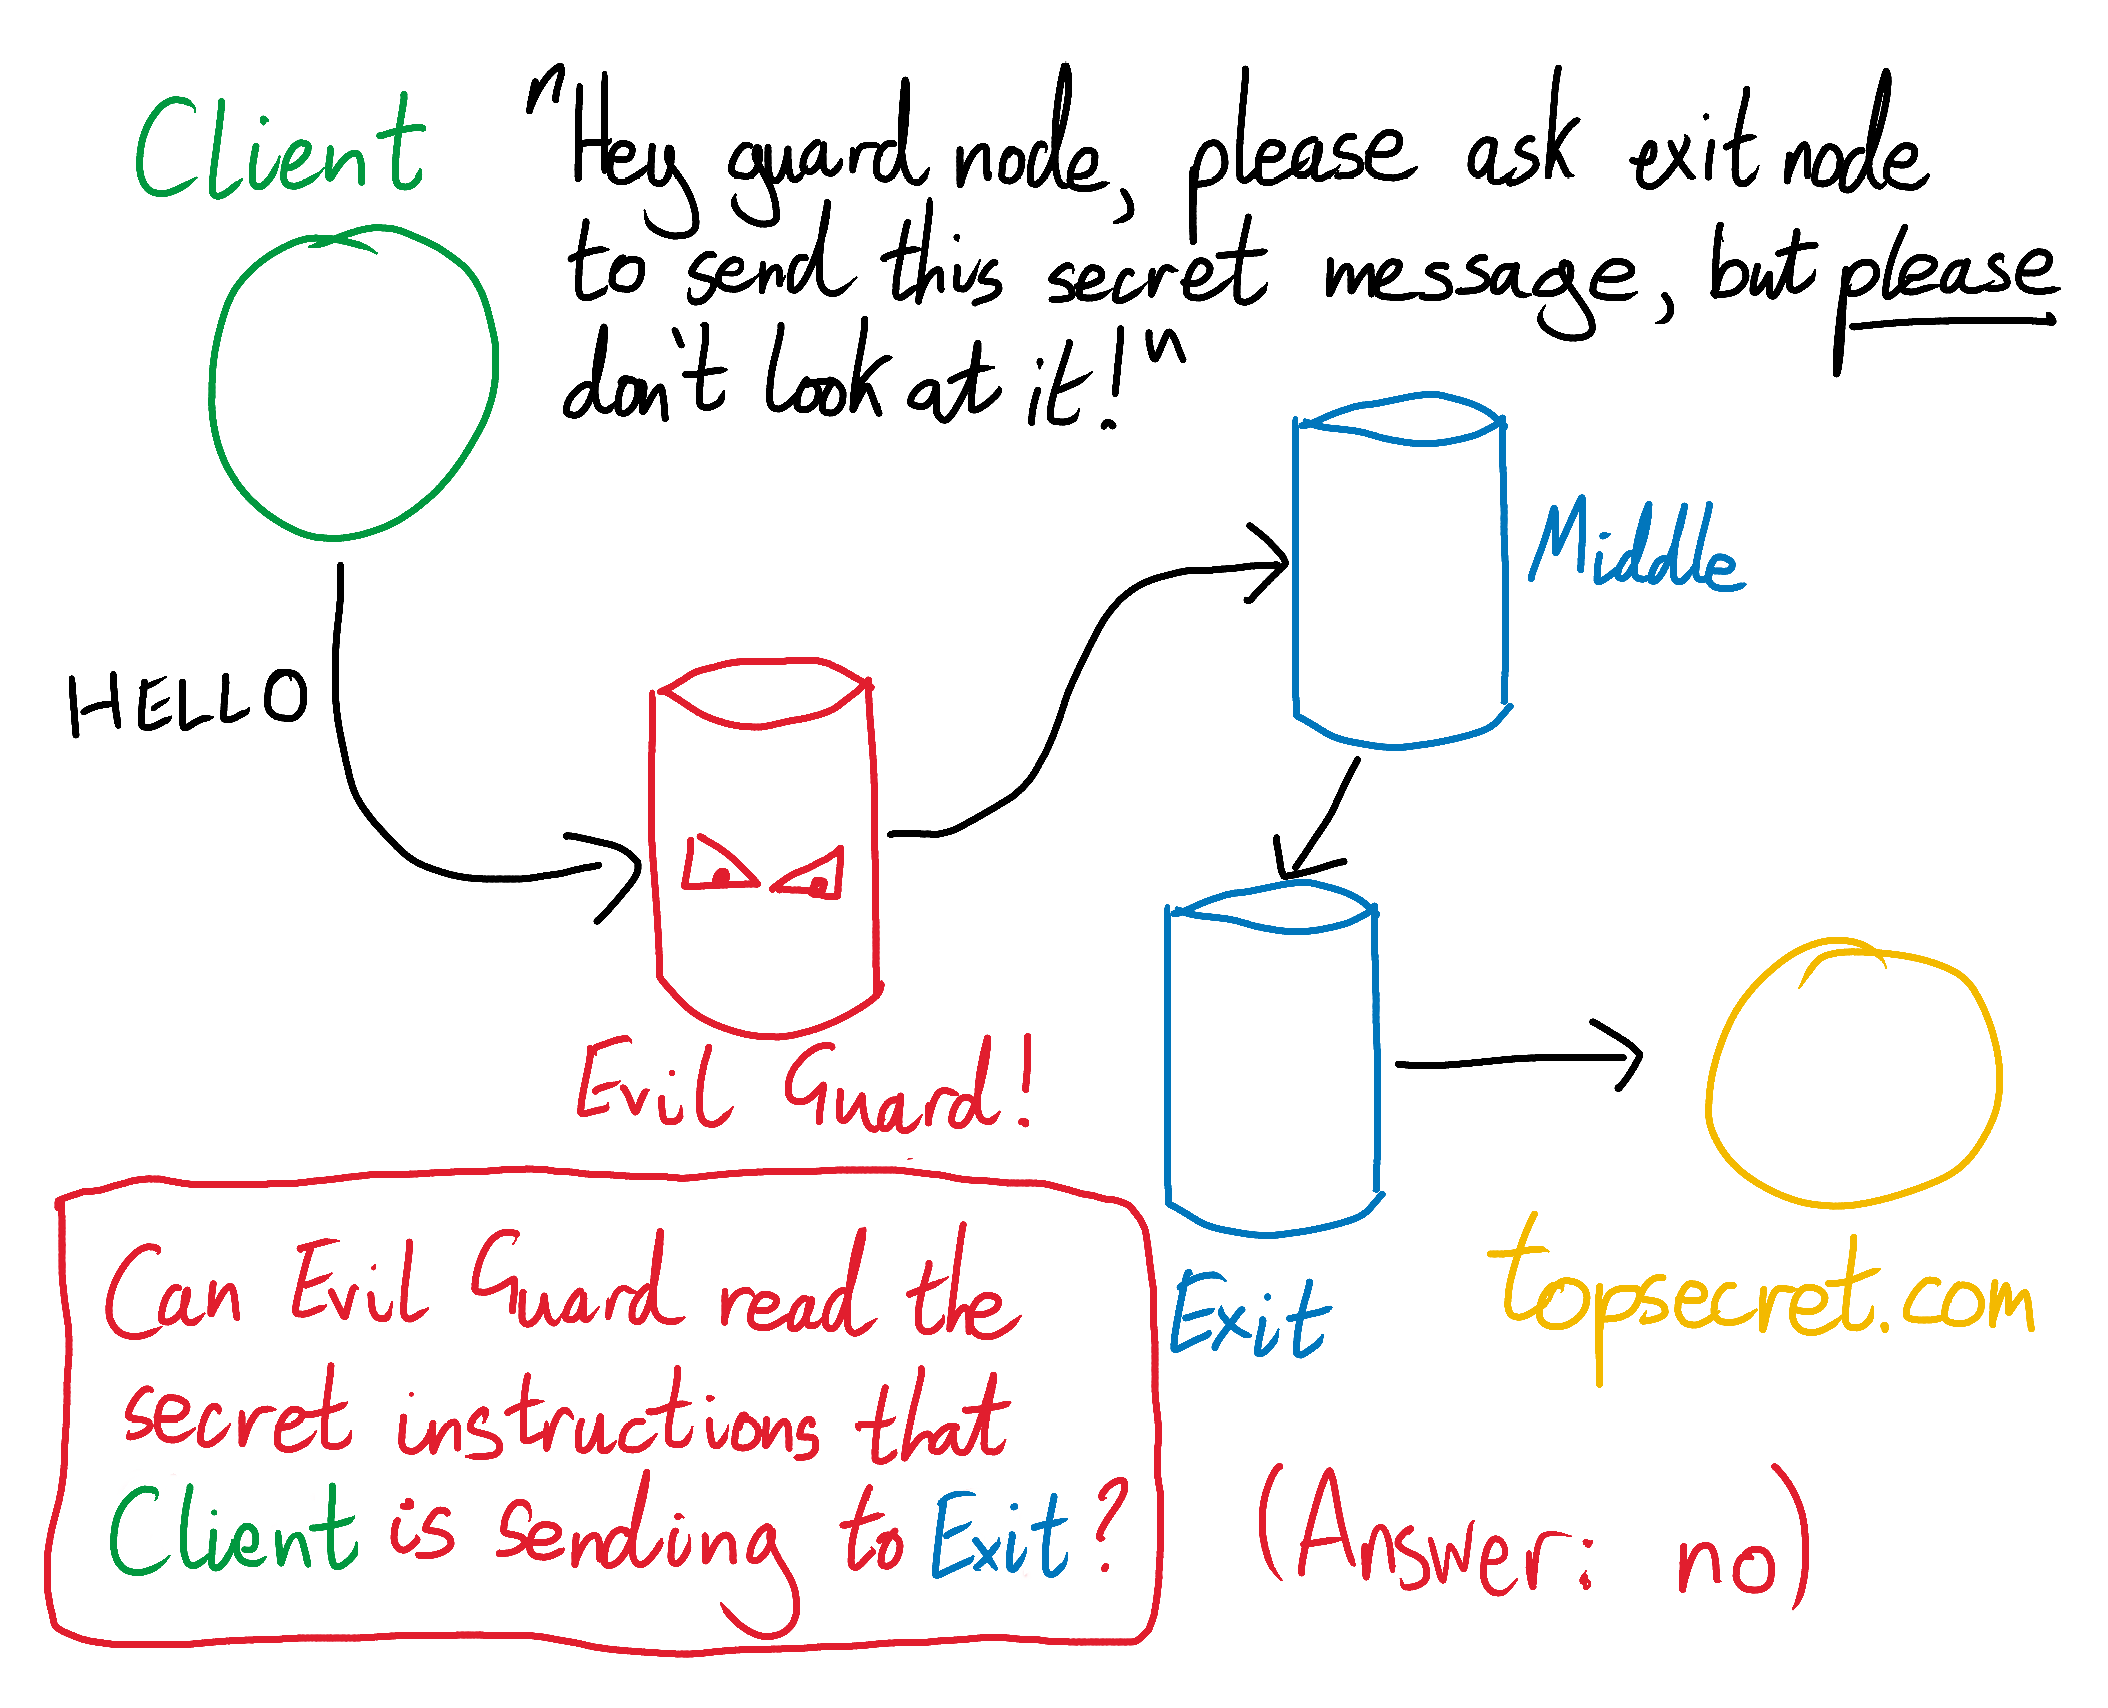 Client
"Hey guard node, please ask exit node
to send this secret message, but please
don't look at it!"
Middle
HELLO
Evil Guard!
Exit
topsecret.com
Can Evil Guard read the
secret instructions that
Client is sending to Exit?
(Answer: no)